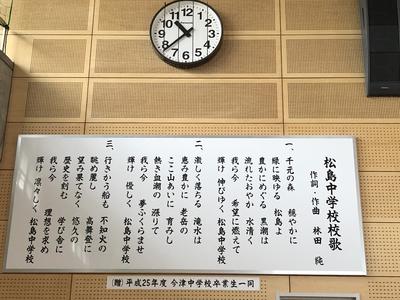 松島中学校校歌
作詞・作曲 林田 純
一、千元の森 穏やかに
緑に映ゆる 松島よ
豊かにめぐる 黒潮は
流れたおやか 水清く
我ら今 希望に燃えて
輝け 伸びゆく 松島中学校
二、激しく落ちる 滝水は
恵み豊かに 老岳の
ここ山あいに 育みし
熱き血潮の 漲りて
我ら今 夢ふくらませ
輝け 優しく 松島中学校
三、行きかう船も 不知火の
眺め麗し 高舞登に
望み果てなく 悠久の
歴史を刻む 学び舎に
我ら今 理想を求め
輝け 凛々しく 松島中学校
(贈) 平成25年度 今津中学校卒業生一同
12
1
2
3
4
5
6
7
8
9
10
11